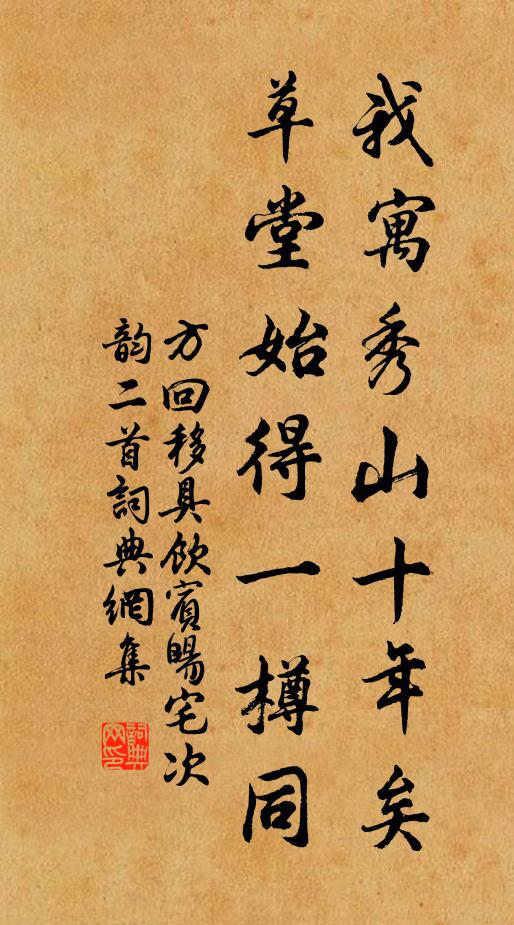 我寓秀山十年矣
草堂始得一樽同
方回移具飲賓暘宅次
韵二首詞典網集
詞典
网印